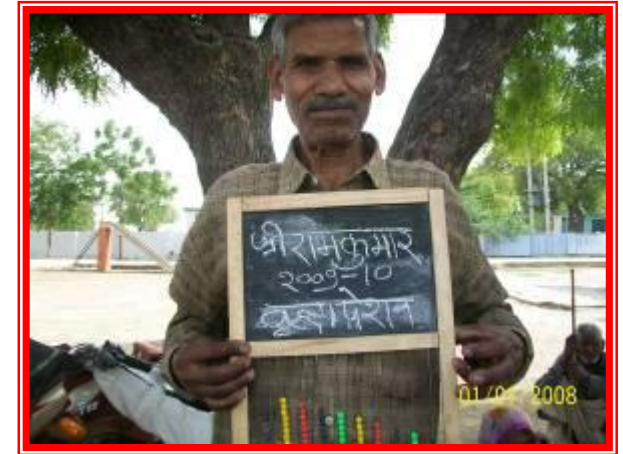 श्री रामकुमार
२००९-१०
वृद्धा पेंशन
01/01/2008